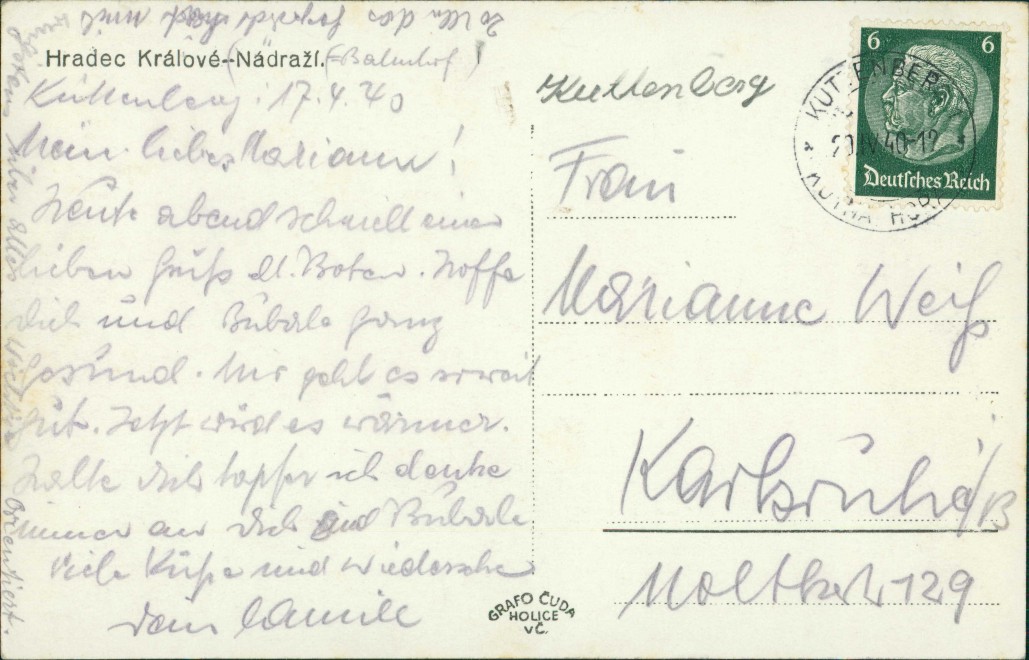 Hradec Králové-Nádraží. (=Bahnhof)
Kuttenberg. 17.4.40
Mein liebes Mariann!
Heute abend schnell einen
lieben Gruß d. Boten. Hoffe
Dich und Büberle ganz
gesund. Mir geht es soweit
gut. Jetzt wird es wärmer.
Halte Dich tapfer ich denke
immer an Dich und Büberle
Viele Küße und Wiedersehen
Dein Camill
über alles
orientiert.
Kuttenberg
6 6
Deutsches Reich
KUTTENBERG
20.IV.40-12
KUTNÁ HORA
Frau
Marianne Weiß
Karlsruhe/B
Moltkestr 129
GRAFO ČUDA
HOLICE
v Č.